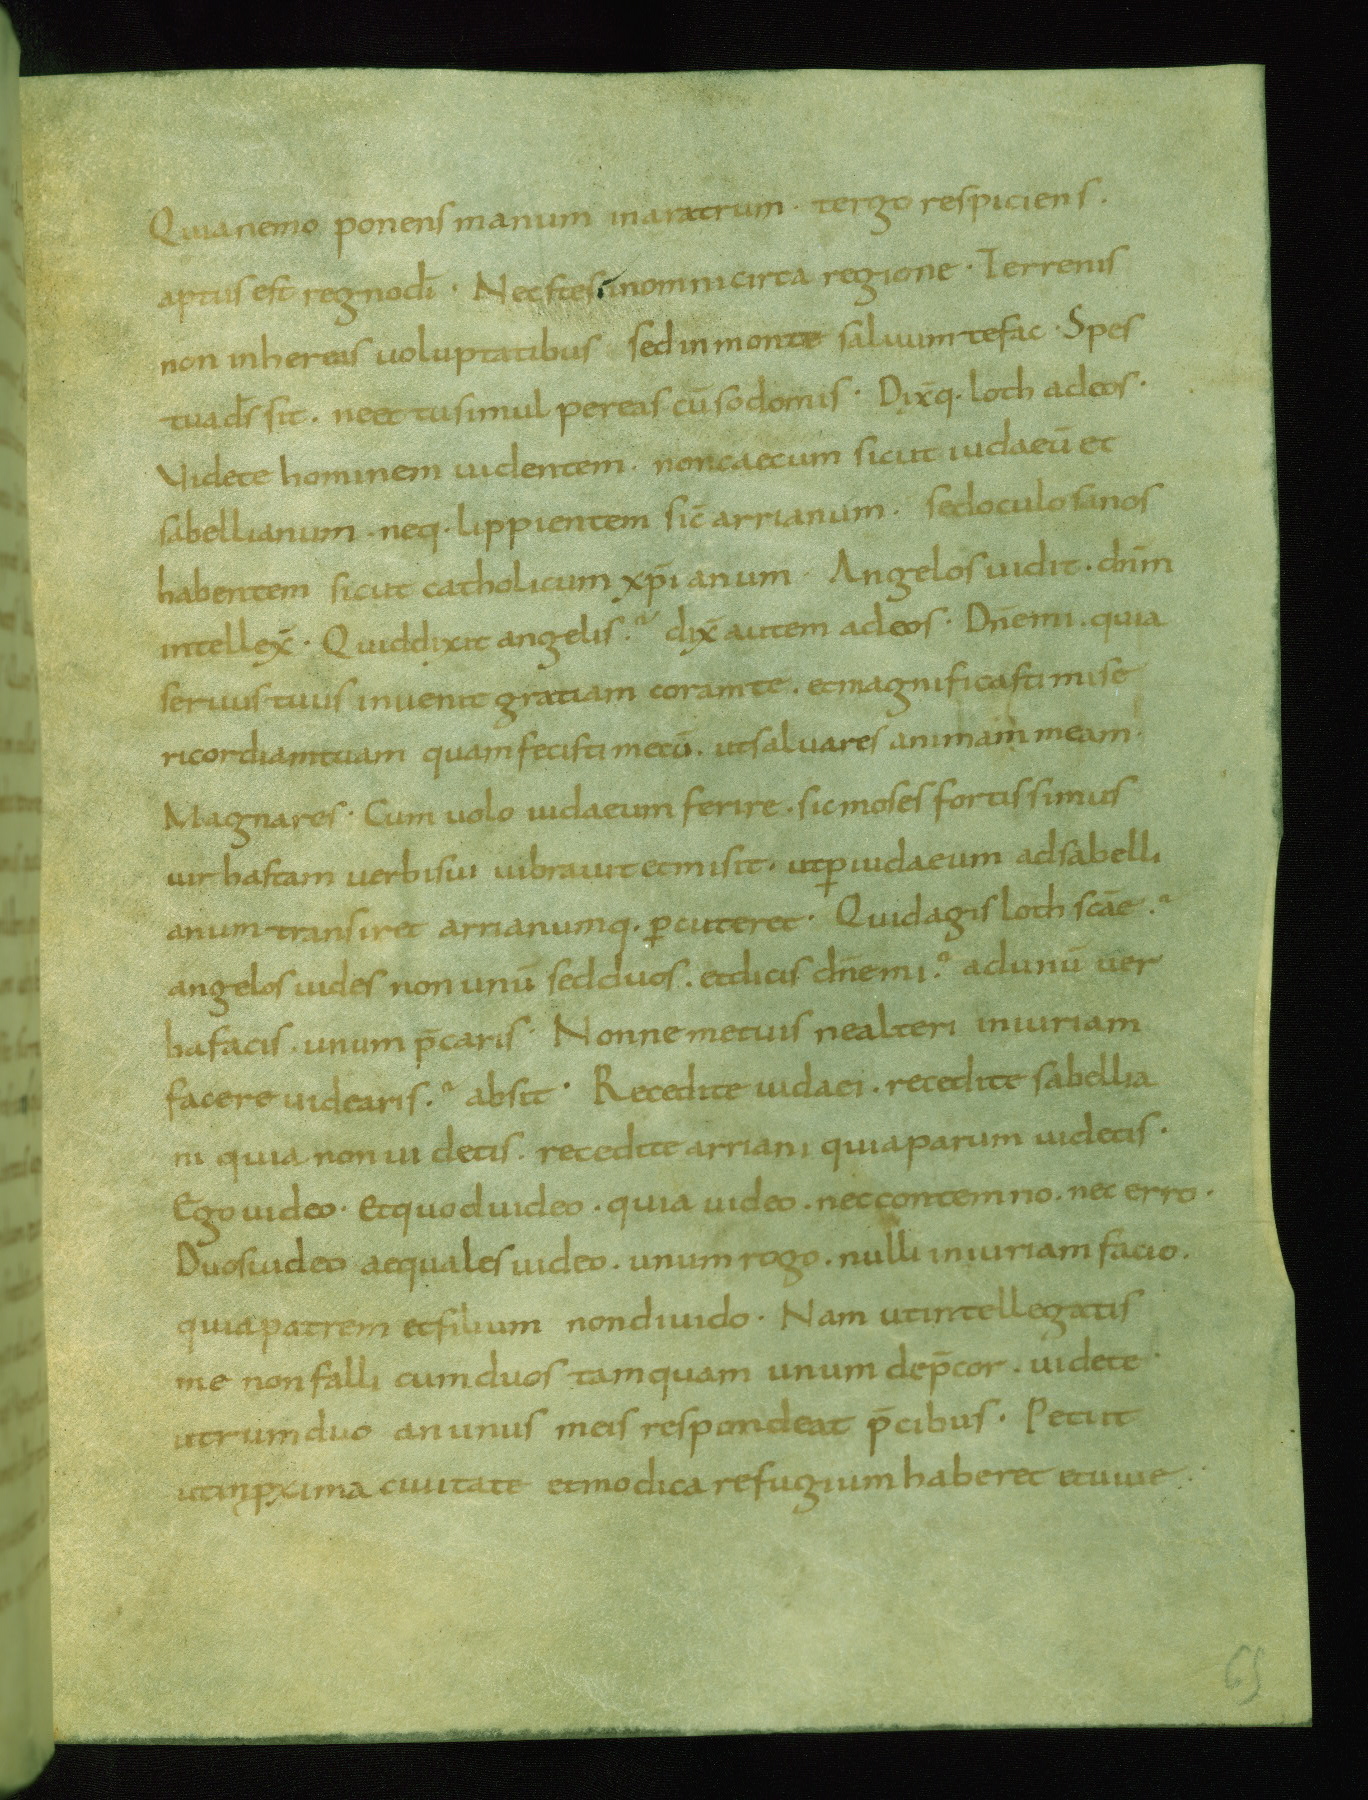 Quia nemo ponens manum in aratrum · tergo respiciens ·
aptus est regno dī · Nec stes in omni circa regione · Terrenis
non inhereas uoluptatibus sed in monte saluum te fac · Spes
tua d̄s sit · ne et tu simul pereas cū sodomis · Dix̄q· loth ad eos ·
Videte hominem uidentem · non caecum sicut iudaeū et
sabellianum · neq· lippientem sic̄ arrianum · sed oculo sanos
habentem sicut catholicum xp̄ianum · Angelos uidit · dn̄m
intellex̄ · Quid dixit angelis? dix̄ autem ad eos · Dn̄e mi · quia
seruus tuus inuenit gratiam coram te · et magnificasti mise
ricordiam tuam quam fecisti mecū · ut saluares animam meam ·
Magna res · Cum uolo iudaeum ferire · sic moses fortissimus
uir hastam uerbi sui uibrauit et misit · ut ꝑ iudaeum ad sabelli
anum transiret arrianumq· ꝑcuteret · Quid agis loth sc̄ae?
angelos uides non unū sed duos · et dicis dn̄e mi? ad unū uer
ba facis · unum p̄caris · Nonne metuis ne alteri iniuriam
facere uidearis? absit · Recedite iudaei · recedite sabellia
ni quia non uidetis · recedite arriani quia parum uidetis ·
Ego uideo · Et quod uideo · quia uideo · nec contemno · nec erro ·
Duos uideo aequales uideo · unum rogo · nulli iniuriam facio ·
quia patrem et filium non diuido · Nam ut intellegatis
me non falli cum duos tamquam unum dep̄cor · uidete ·
utrum duo an unus meis respondeat p̄cibus · Petiit
ut in ꝓxima ciuitate et modica refugium haberet et uiue ·
65